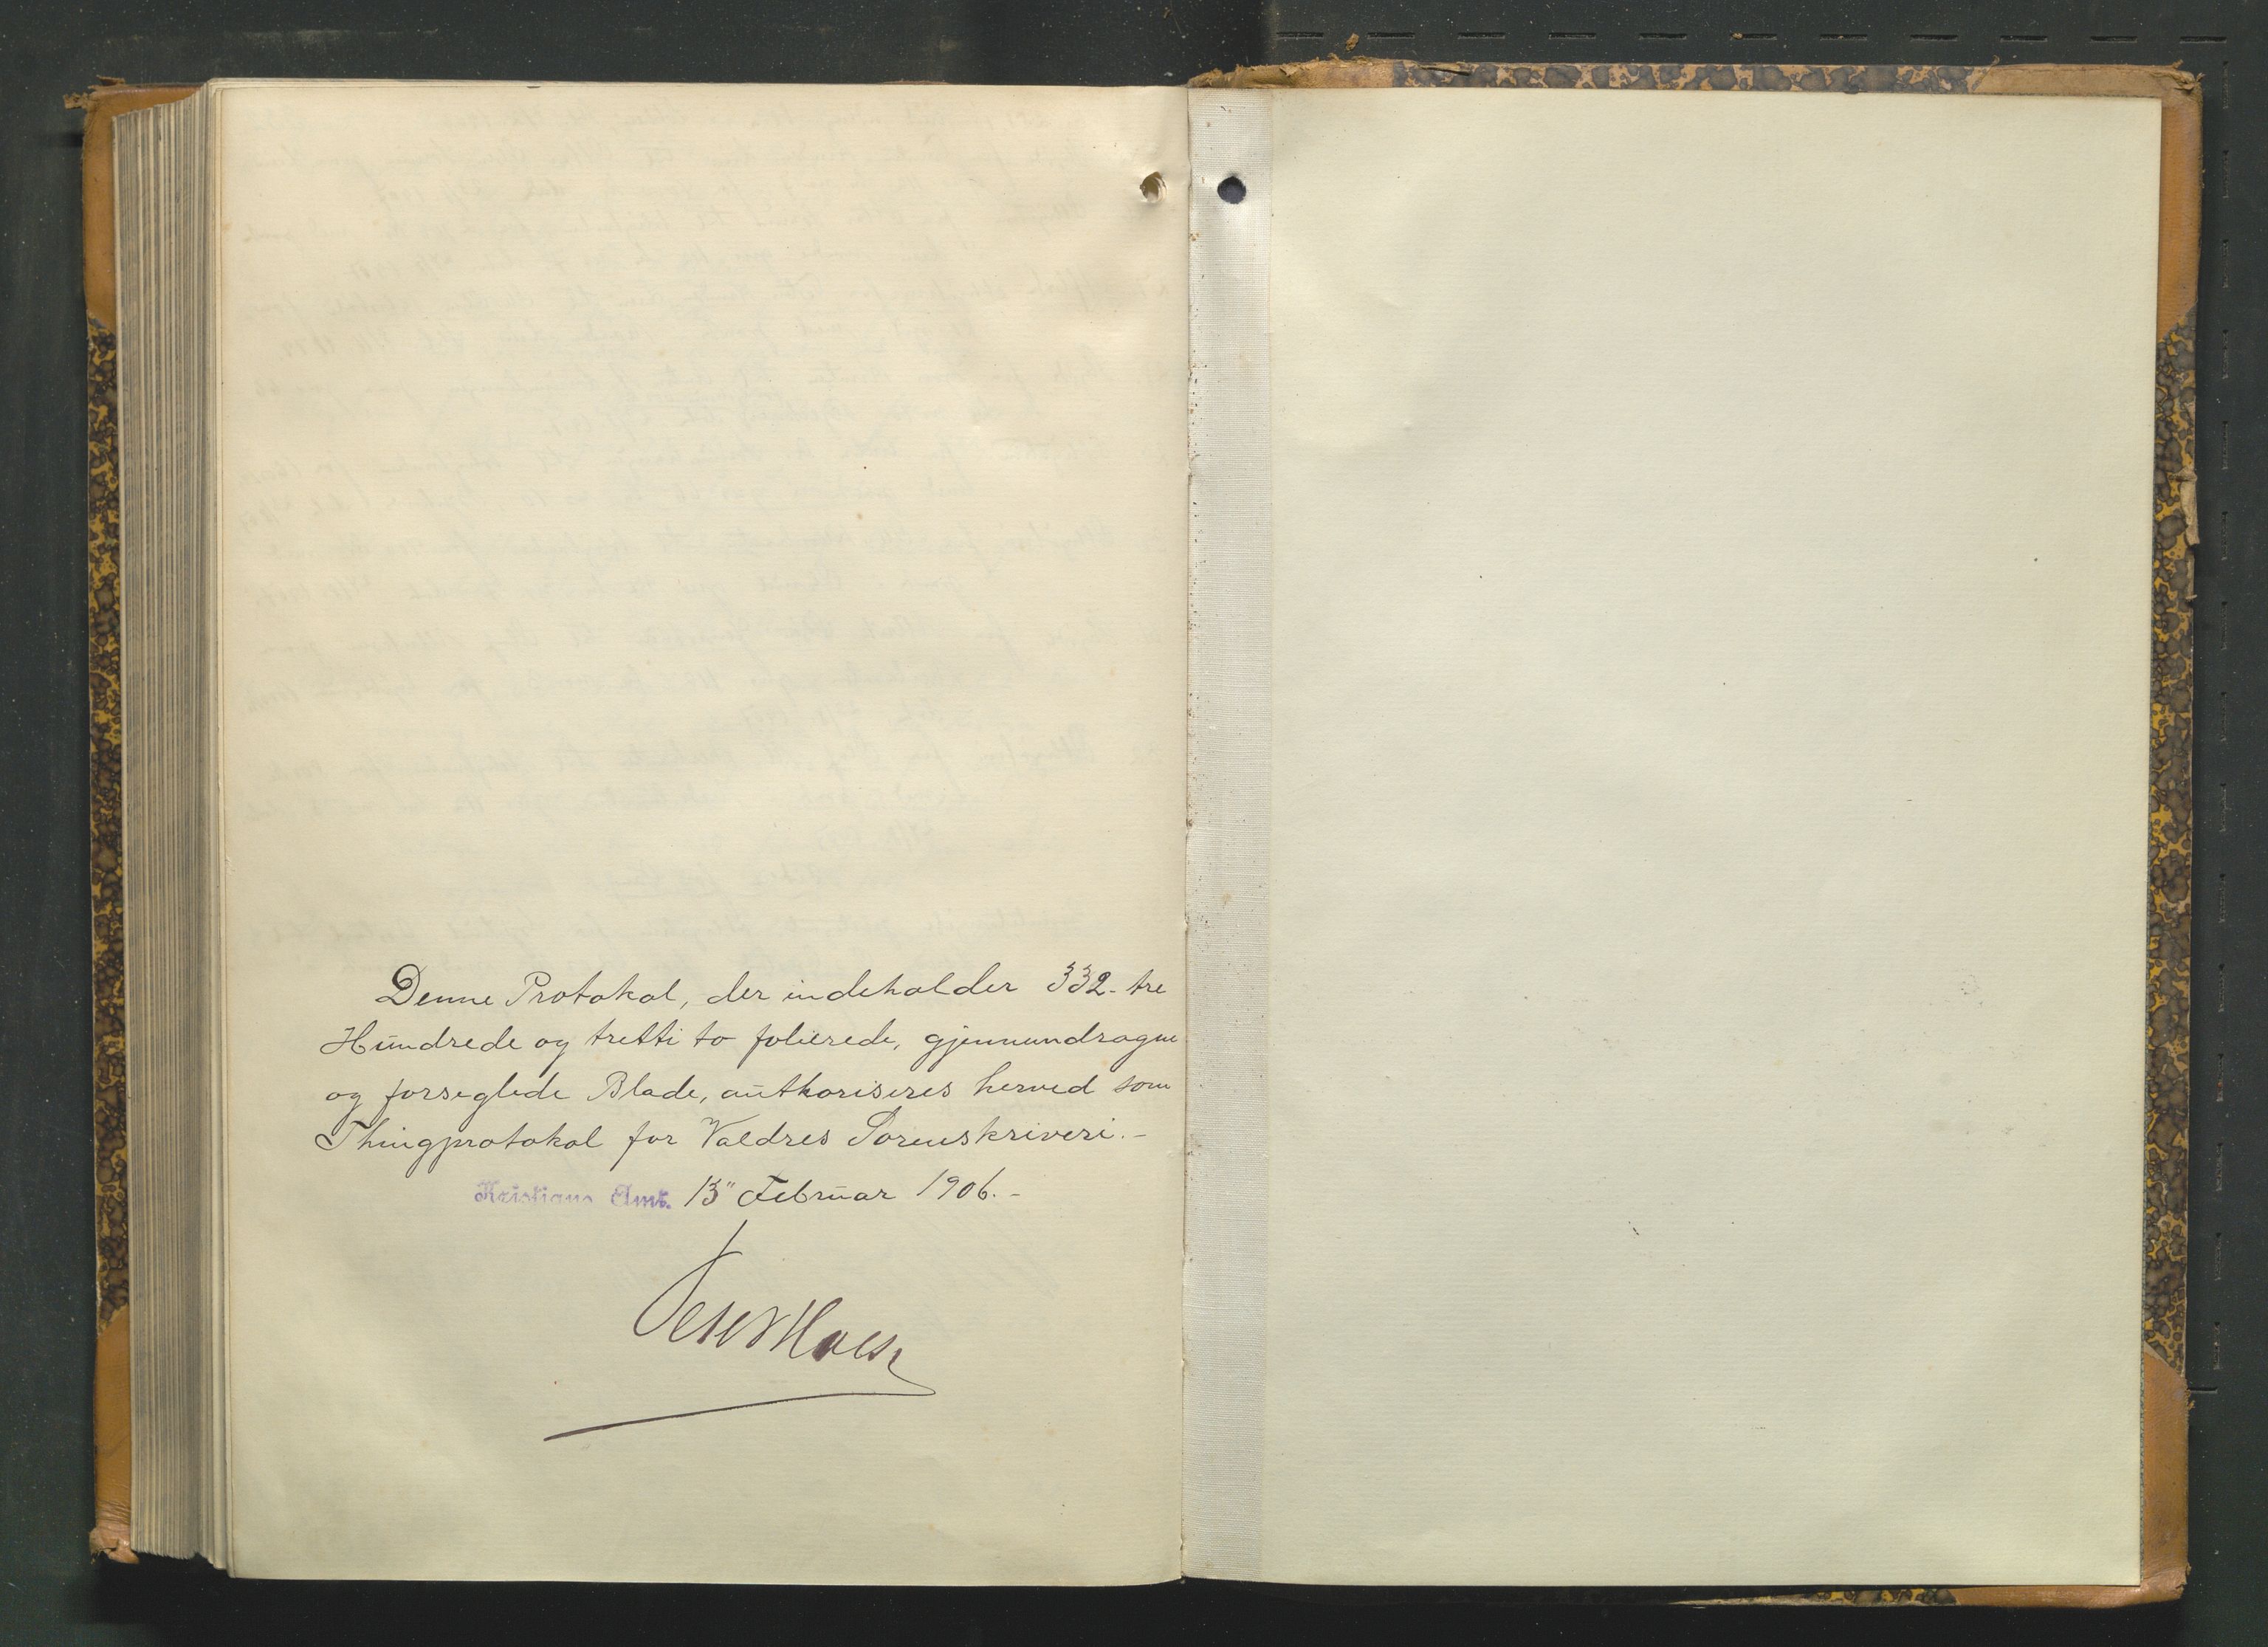 Denne Protokol, der indeholder 332 - tre
Hundrede og tretti to folierede, gjennemdragne
og forseglede Blade, authoriseres herved som
Thingprotokol for Valdres Sorenskriveri. -
Kristians Amt. 13" Februar 1906. -